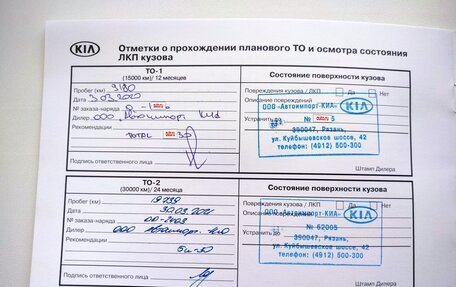 KIA Отметки о прохождении планового ТО и осмотра состояния
ЛКП кузова
ТО-1
(15000 km)/ 12 месяцев
Состояние поверхности кузова
Пробег (км) 9180
Повреждения кузова / ЛКП Да Нет
Дата 3.03.2020
Описание повреждений
№ заказа-наряда
Дилер ООО Автоимпорт КИА
Устранить до
Рекомендации
ООО «Автоимпорт-КИА» KIA
№ 5
390047, Рязань,
ул. Куйбышевское шоссе, 42
телефон: (4912) 500-300
Подпись ответственного лица
Штамп Дилера
ТО-2
(30000 km)/ 24 месяца
Состояние поверхности кузова
Пробег (км) 19239
Повреждения кузова / ЛКП Да Нет
Дата 30.03.2021
Описание повреждений
№ заказа-наряда
Дилер ООО Автоимпорт КИА
Устранить до
Рекомендации 5w-30
ООО «Автоимпорт-КИА» KIA
№ 62005
390047, Рязань,
ул. Куйбышевское шоссе, 42
телефон: (4912) 500-300
Подпись ответственного лица
Штамп Дилера